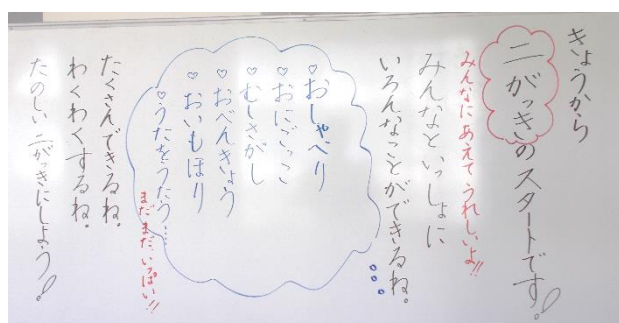 きょうから
二がっきのスタートです!
みんなにあえてうれしいよ!!
みんなといっしょに
いろんなことができるね。
♡おしゃべり
♡おにごっこ
♡むしさがし
♡おべんきょう
♡おいもほり
♡うたをうたう…
まだまだいっぱい!!
たくさんできるね。
わくわくするね。
たのしい二がっきにしよう!